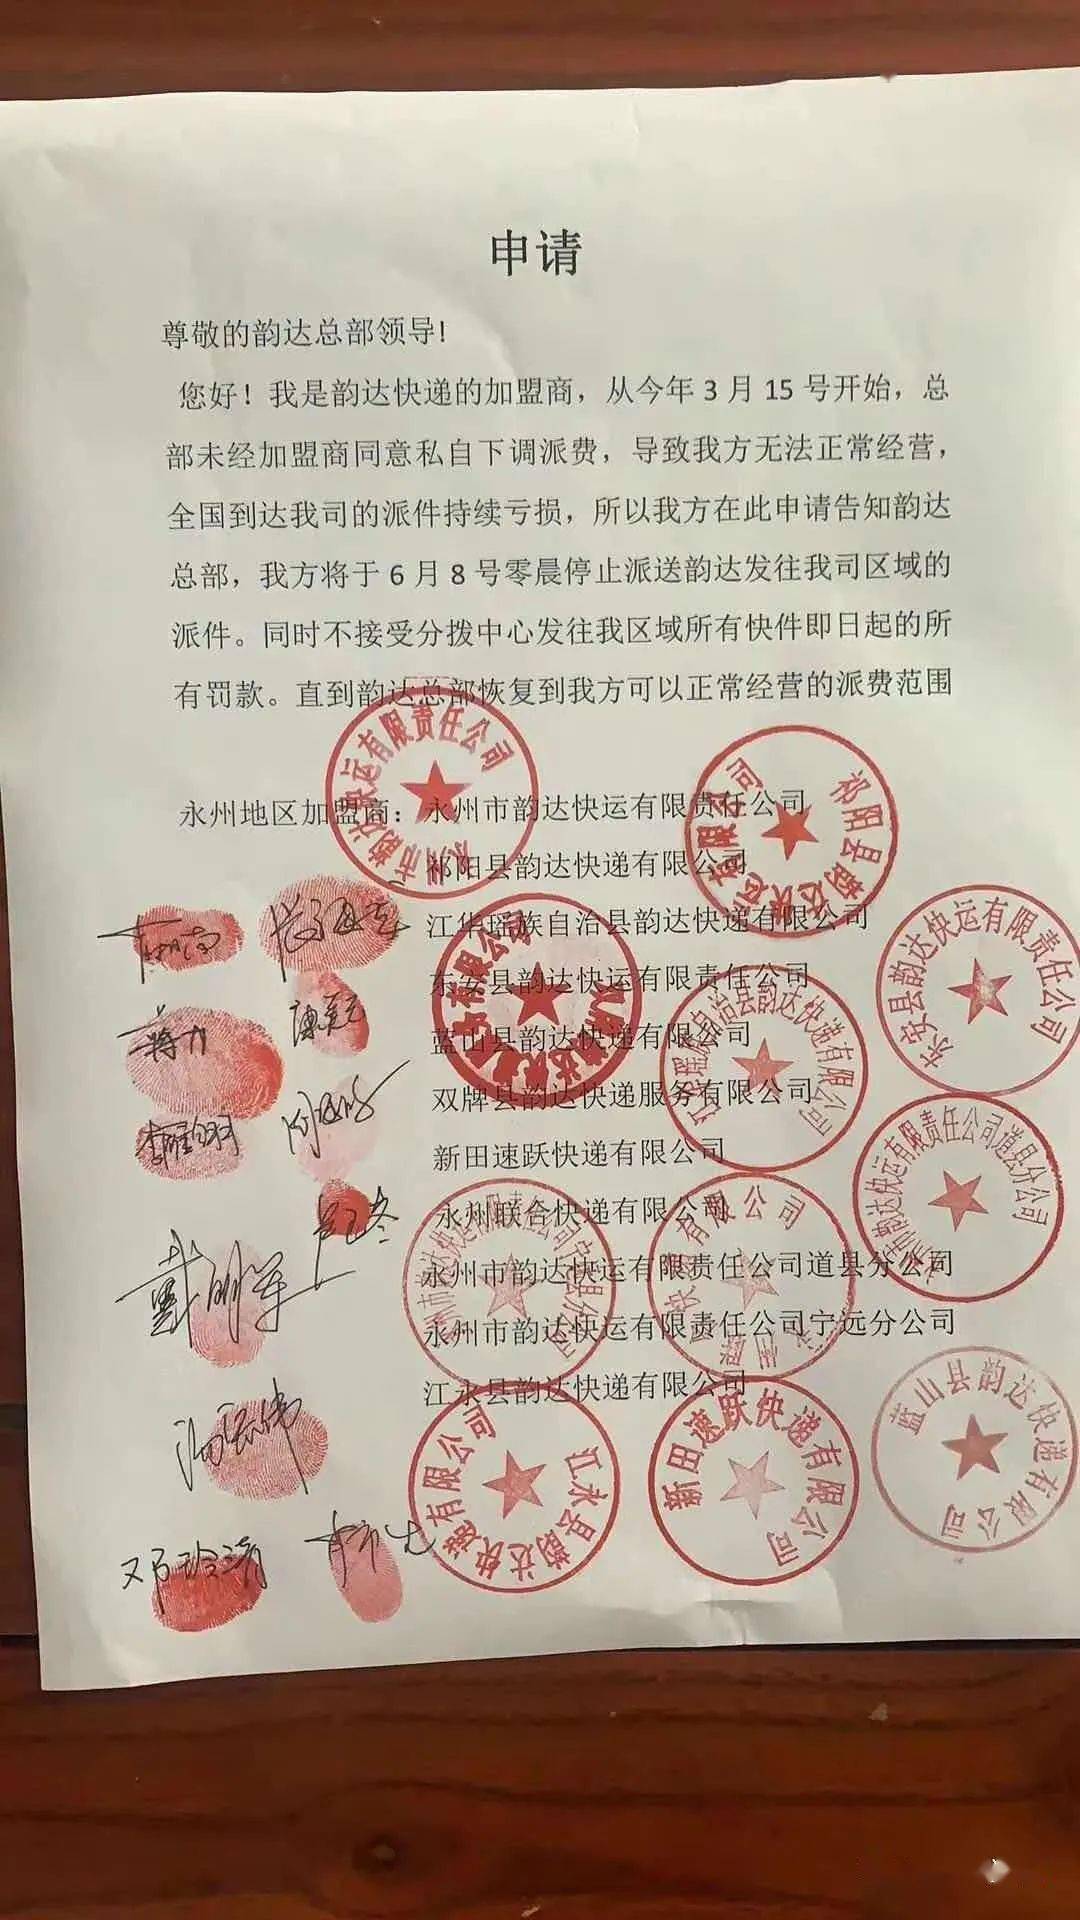 申请
尊敬的韵达总部领导!
您好！我是韵达快递的加盟商，从今年 3 月 15 号开始，总
部未经加盟商同意私自下调派费，导致我方无法正常经营，
全国到达我司的派件持续亏损，所以我方在此申请告知韵达
总部，我方将于 6 月 8 号零晨停止派送韵达发往我司区域的
派件。同时不接受分拨中心发往我区域所有快件即日起的所
有罚款。直到韵达总部恢复到我方可以正常经营的派费范围
永州地区加盟商：永州市韵达快运有限责任公司
祁阳县韵达快递有限公司
江华瑶族自治县韵达快递有限公司
东安县韵达快运有限责任公司
蓝山县韵达快递有限公司
双牌县韵达快递服务有限公司
新田速跃快递有限公司
永州联合快递有限公司
永州市韵达快运有限责任公司道县分公司
永州市韵达快运有限责任公司宁远分公司
江永县韵达快递有限公司
永州市韵达快运有限责任公司
祁阳县韵达快递有限公司
东安县韵达快运有限责任公司
江华瑶族自治县韵达快递有限公司
永州市韵达快运有限责任公司道县分公司
江永县韵达快递有限公司
新田速跃快递有限公司
蓝山县韵达快递有限公司
蒋力
戴明军
邓玲清